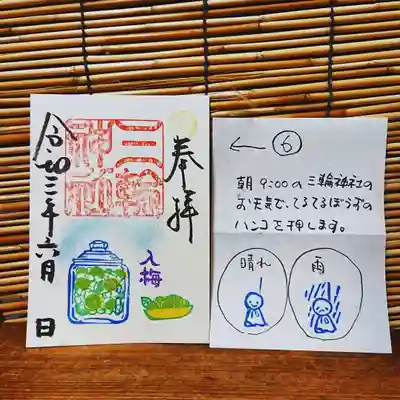 奉拝
三輪
神社
入梅
令和三年六月 日
← ⑥
朝 9:00の三輪神社の
お天気で、てるてるぼうずの
ハンコを押します。
晴れ
雨